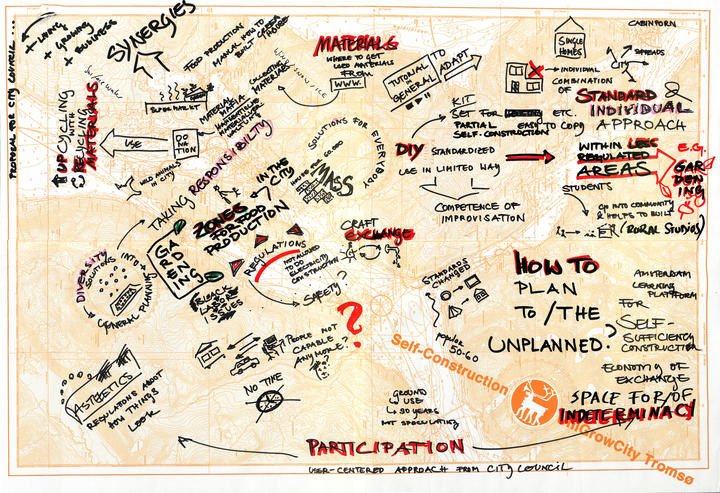 PROPOSAL FOR CITY COUNCIL ...
+ LIVING
+ GROWING
+ BUSINESS
SYNERGIES
FOOD PRODUCTION
MANUAL HOW TO
BUILT GREEN
HOUSE
COLLECTING
MATERIALS
SUPER MARKET
MATERIAL
MAFIA
DONATION
USE
UPCYCLING
WITH
RECYCLING
MATERIALS
WILD ANIMALS
IN CITY
TAKING RESPONSIBILITY
IN THE
CITY
ZONES
FOR FOOD
PRODUCTION
MATERIALS
WHERE TO GET
USED MATERIALS
FROM
WWW.
SOLUTIONS FOR EVERYBODY
MASS
TUTORIAL
IN
GENERAL
TO
ADAPT
KIT
SET FOR
ETC.
PARTIAL
EASY TO COPY
SELF-CONSTRUCTION
DIY STANDARDIZED
USE IN LIMITED WAY
COMPETENCE OF
IMPROVISATION
SINGLE
HOMES
CABINPORN
SPREADS
CITY
INDIVIDUAL
COMBINATION
OF STANDARD &
INDIVIDUAL
APPROACH
WITHIN LESS
REGULATED
AREAS
E.G.
GARDENING
STUDENTS
GO INTO COMMUNITY
& HELPS TO BUILT
(RURAL STUDIOS)
DIVERSITY
SOLUTIONS
INTO
GENERAL PLANNING
REGULATIONS
NOT ALLOWED
TO DO
ELECTRICITY
CONSTRUCTION
SAFETY?
CRAFT
EXCHANGE
BLACK
LABOR
ISSUES
PEOPLE NOT
CAPABLE
ANY MORE?
?
NO TIME
ASTHETICS
REGULATIONS ABOUT
HOW THINGS
LOOK
STANDARDS
CHANGED
popular
50-60
HOW TO
PLAN
TO / THE
UNPLANNED?
AMSTERDAM
LEARNING
PLATFORM
FOR
SELF-
SUFFICIENCY
CONSTRUCTION
ECONOMY OF
EXCHANGE
SPACE FOR/OF
INDETERMINACY
GROUND
USE
30 YEARS
NOT SPECULATING
Self-Construction
CrowCity Tromsø
PARTICIPATION
USER-CENTERED APPROACH FROM CITY COUNCIL